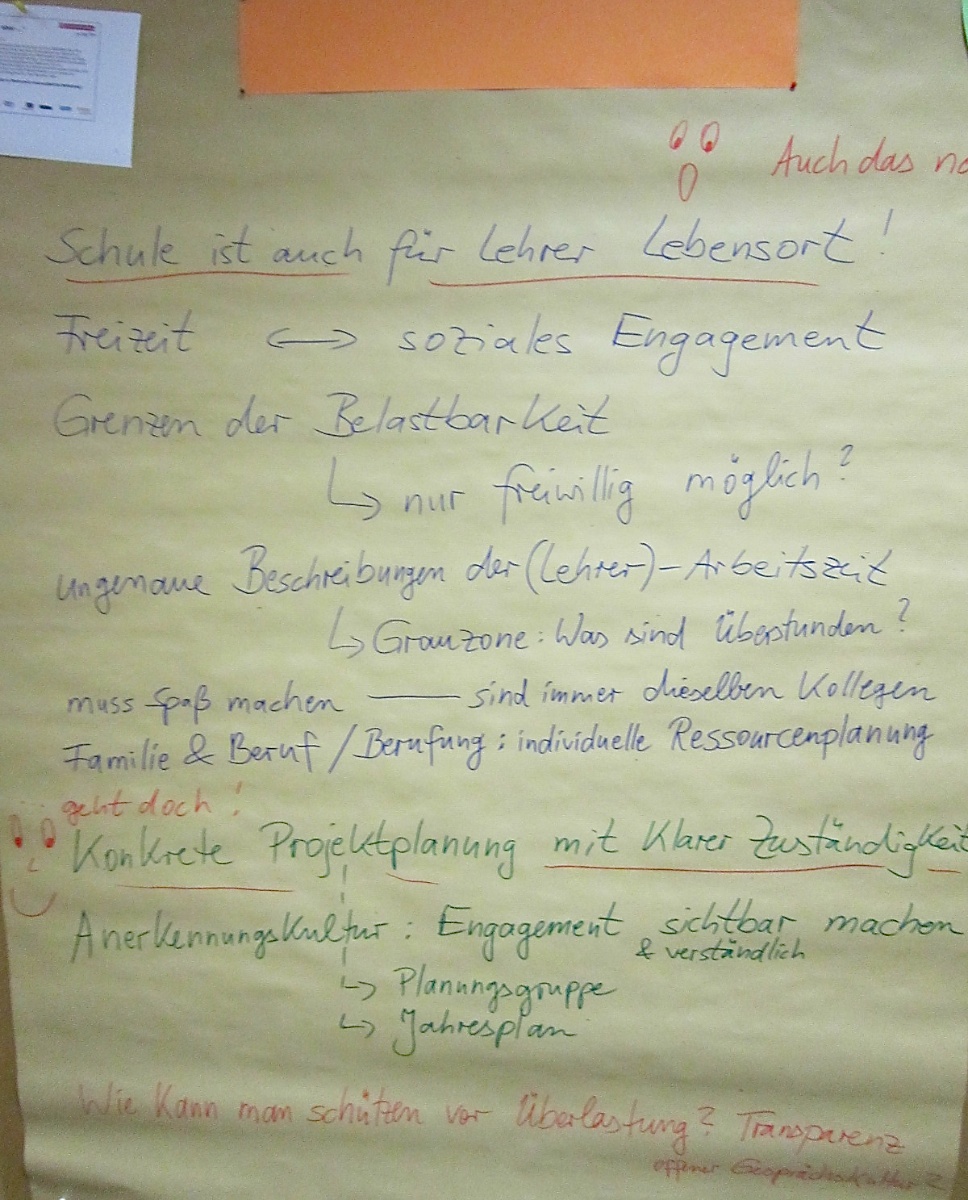 Auch das no
Schule ist auch für Lehrer Lebensort!
Freizeit <-> soziales Engagement
Grenzen der Belastbarkeit
↳ nur freiwillig möglich?
ungenaue Beschreibungen der (Lehrer)-Arbeitszeit
↳ Grauzone: Was sind Überstunden?
muss Spaß machen — sind immer dieselben Kollegen
Familie & Beruf / Berufung: individuelle Ressourcenplanung
geht doch!
Konkrete Projektplanung mit klarer Zuständigkeit
Anerkennungskultur: Engagement sichtbar machen
& verständlich
↳ Planungsgruppe
↳ Jahresplan
Wie kann man schützen vor Überlastung? Transparenz
offener Gesprächskultur?